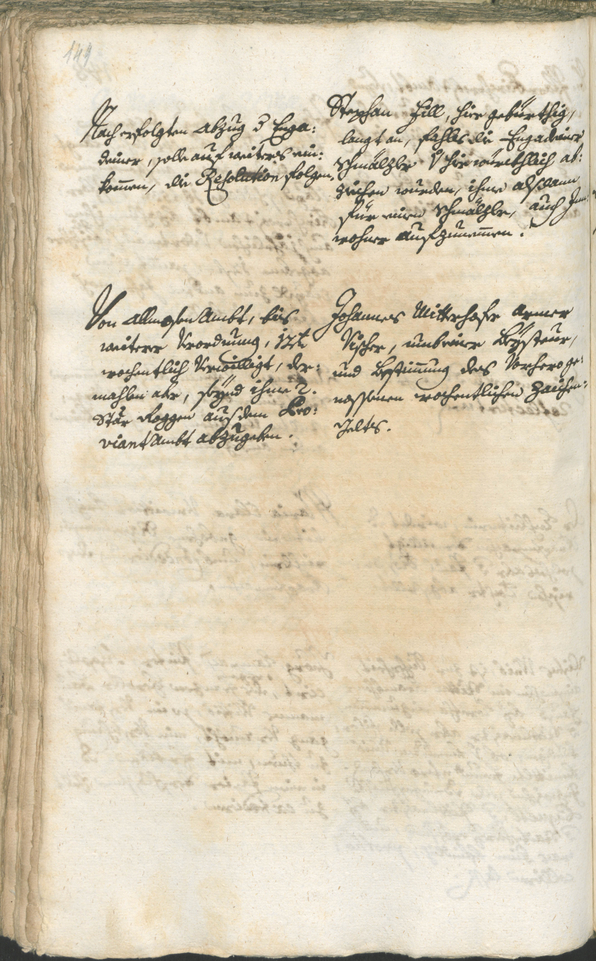 149
Nach erfolgten Abzug d Enga:
deiner, solle auf weiters ein:
kommen, die Resolution folgen.
Stephan Fill, hier gebürthig,
langt an, fahls die Engadeiner
Schmälzler hier würckhlich ab:
ziehen wurden, ihme alsdann
für einen Schmälzler, auch Jnn:
wohner aufzunemmen.
Von Allmosen Ambt, bis
weitere Verordnung, 12 x
wochentlich Verwilligt, der:
mahlen aber, seynd ihme 2.
Stär Roggen aus dem Pro:
viant Ambt abzugeben.
Johannes Mitterhofer Armer
Vischer, umb eine Beysteur,
und Bestimmung des Vorhero ge:
nossenen wochentlichen Zaichen:
gelts.